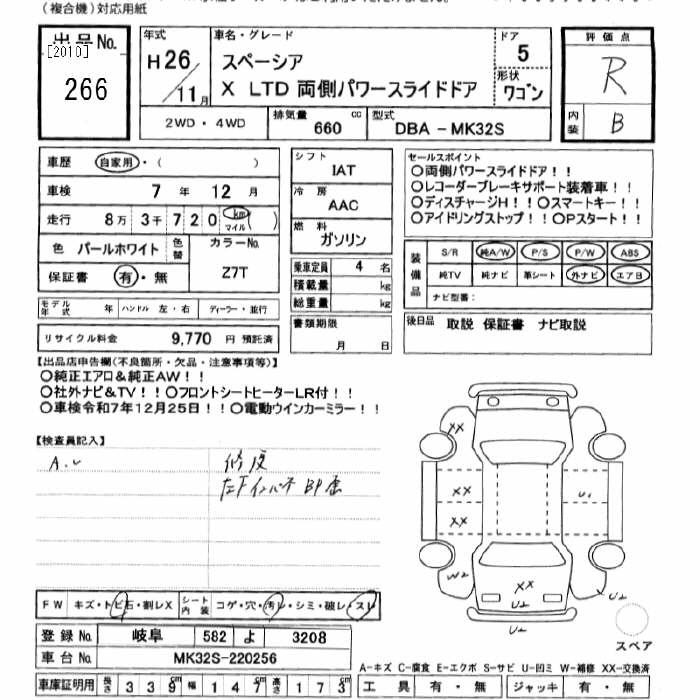 (複合機)対応用紙
出品No. [2010] 266
年式 H26/11月
車名・グレード スペーシア
X LTD 両側パワースライドドア
ドア 5
形状 ワゴン
評価点 R
内装 B
2WD・4WD
排気量 660 cc
型式 DBA-MK32S
車歴 自家用・( )
車検 7年 12月
走行 8万3千720 km マイル( )
色 パールホワイト 色替 カラーNo. Z7T
保証書 有・無
モデル年式 年 ハンドル 左・右 ディーラー・並行
リサイクル料金 9,770 円 預託済
シフト IAT
冷房 AAC
燃料 ガソリン
乗車定員 4 名
積載量 kg
総重量 kg
書類期限 月 日
セールスポイント
○両側パワースライドドア!!
○レコーダーブレーキサポート装着車!!
○ディスチャージH!!○スマートキー!!
○アイドリングストップ!!○Pスタート!!
装備品 S/R 純A/W P/S P/W ABS
純TV 純ナビ 革シート 外ナビ エアB
ナビ型番:
後日品 取説 保証書 ナビ取説
【出品店申告欄(不良箇所・欠品・注意事項等)】
○純正エアロ&純正AW!!
○社外ナビ&TV!!○フロントシートヒーターLR付!!
○車検令和7年12月25日!!○電動ウインカーミラー!!
【検査員記入】
A.U
修復
XX
XX
XX
U1
W2
XX
U2
U2
U2
スペア
FW キズ・トビ石・割レX シート内装 コゲ・穴・汚レ・シミ・破レ・スレ
登録No. 岐阜 582 よ 3208
車台No. MK32S-220256
車庫証明用 長さ 339 幅 147 高さ 173 cm
A-キズ C-腐食 E-エクボ S-サビ U-凹ミ W-補修 XX-交換済
工具 有・無 ジャッキ 有・無